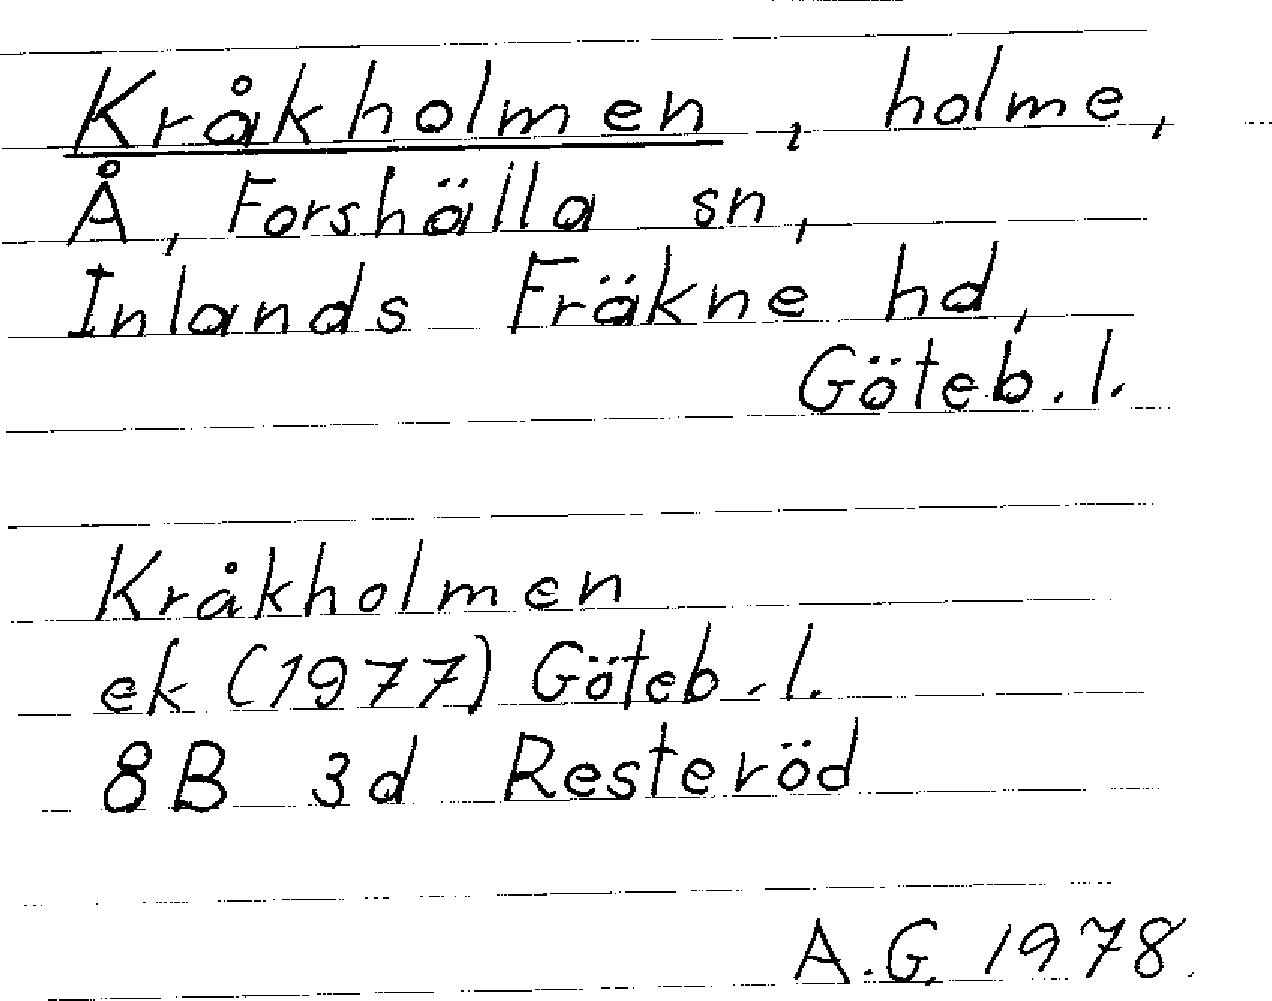 Kråkholmen, holme,
Å, Forshälla sn,
Inlands Fräkne hd,
Göteb. l.
Kråkholmen
ek (1977) Göteb. l.
8B 3d Resteröd
A.G. 1978.